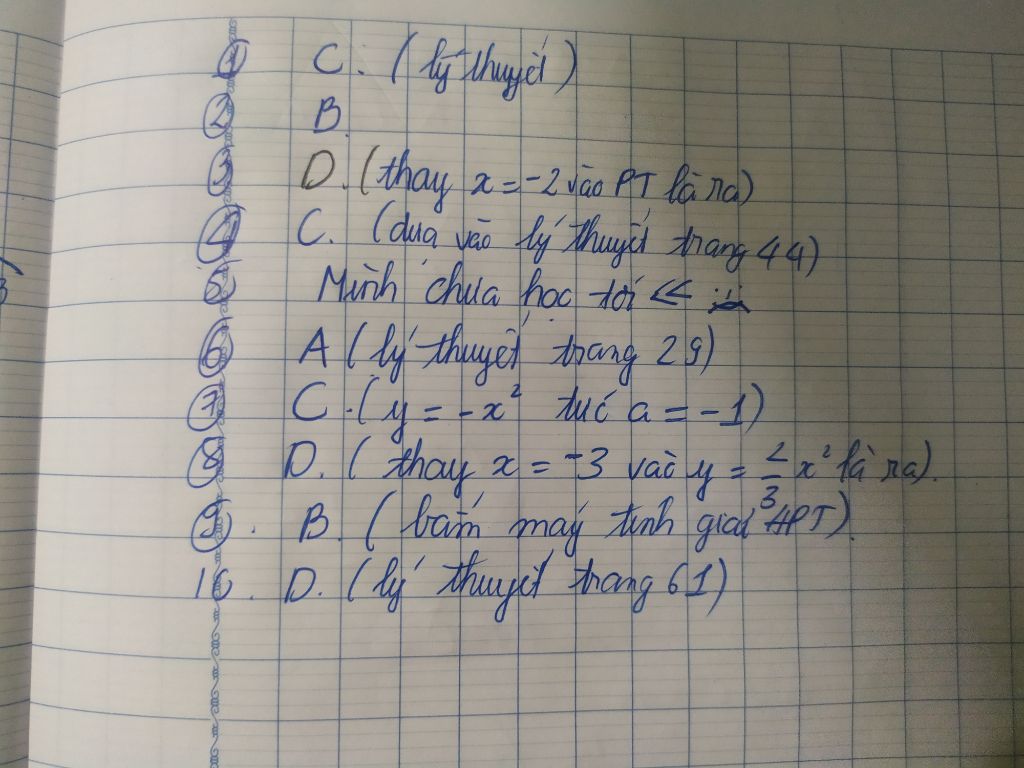 1 C. (lý thuyết)
2 B.
3 D. (thay x = -2 vào PT là ra)
4 C. (dựa vào lý thuyết trang 44)
5 Mình chưa học tới <<
6 A (lý thuyết trang 29)
7 C. (y = -x² tức a = -1)
8 D. (thay x = -3 vào y = 2/3 x² là ra).
9. B. (bấm máy tính giải HPT).
10. D. (lý thuyết trang 61)